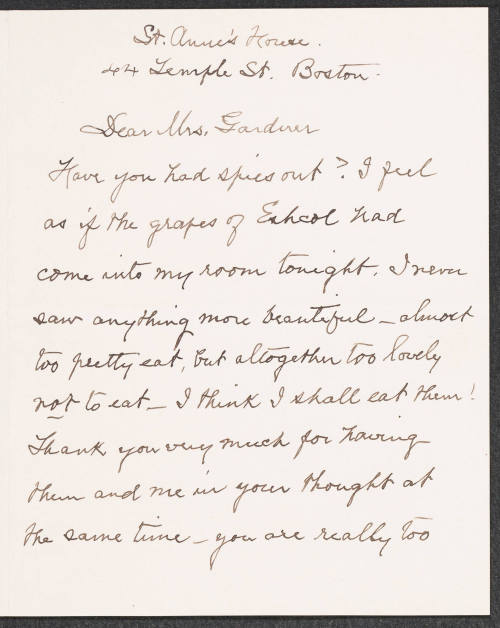 St. Anne's House.
44 Temple St. Boston.
Dear Mrs. Gardner
Have you had spies out? I feel
as if the grapes of Eshcol had
come into my room tonight. I never
saw anything more beautiful – almost
too pretty eat, but altogether too lovely
not to eat – I think I shall eat them!
Thank you very much for having
them and me in your thought at
the same time – you are really too